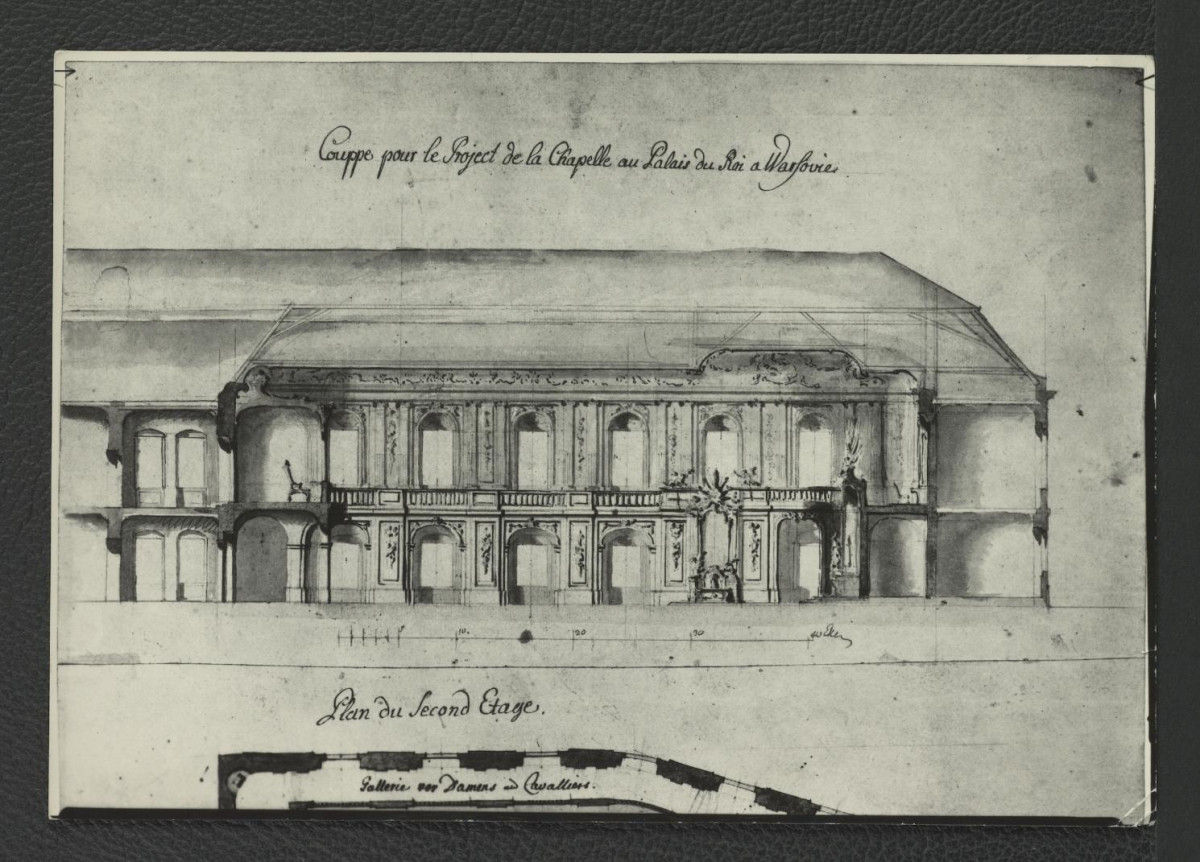 Couppe pour le Project de la Chapelle au Palais du Roi a Warsovie.
10. 20 30 40 Elen
Plan du Second Etage.
Gallerie vor Damens ud Cavalliers.